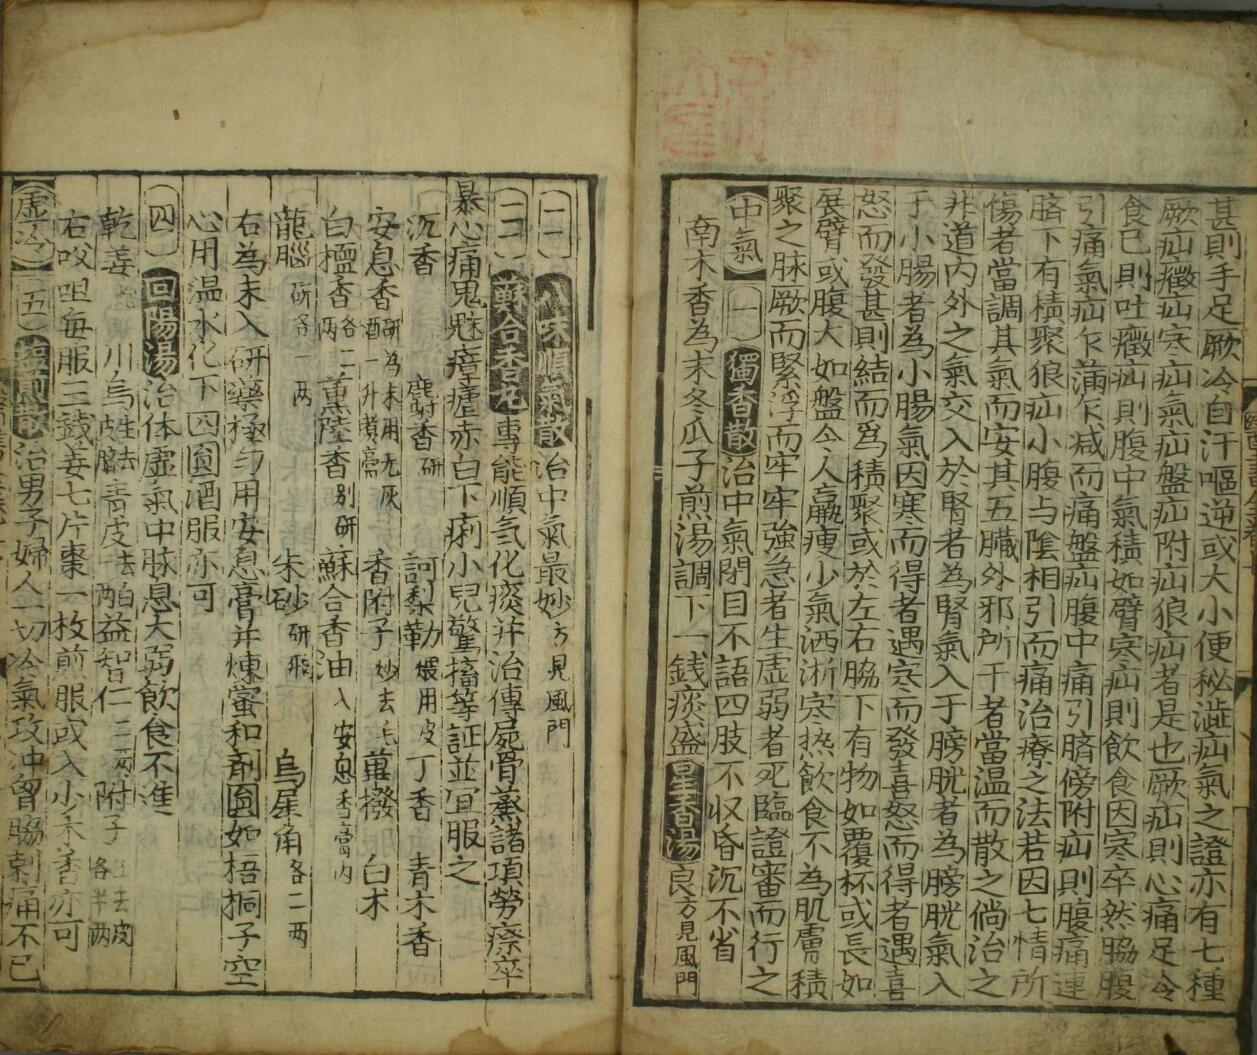 甚則手足厥冷自汗嘔逆或大小便秘澁疝氣之證亦有七種
厥疝癥疝寒疝氣疝盤疝附疝狼疝者是也厥疝則心痛足冷
食已則吐癥疝則腹中氣積如臂寒疝則飲食因寒卒然脇腹
引痛氣疝乍滿乍减而痛盤疝腹中痛引臍傍附疝則腹痛連
臍下有積聚狼疝小腹与陰相引而痛治療之法若因七情所
傷者當調其氣而安其五臟外邪所干者當温而散之倘治之
非道内外之氣交入於腎者為腎氣入于膀胱者為膀胱氣入
于小腸者為小腸氣因寒而得者遇寒而發喜怒而得者遇喜
怒而發甚則結而爲積聚或於左右脇下有物如覆杯或長如
展臂或腹大如盤令人羸瘦少氣洒淅寒热飲食不為肌膚積
聚之脉厥而緊浮而牢牢強急者生虛弱者死臨證審而行之
中氣 一 獨香散治中氣閉目不語四肢不収昏沉不省
南木香為末冬瓜子煎湯調下一錢痰盛星香湯良方見風門
二 八味順氣散治中氣最妙方見風門
三 蘇合香丸專能順氣化痰并治傳屍骨蒸諸項勞瘵卒
暴心痛鬼魅瘴瘧赤白下痢小兒驚搐等証並宜服之
沉香 麝香研 訶黎勒煨用皮丁香 青木香
安息香研為末用无灰酒一升熬膏 香附子炒去毛蓽撥 白朮
白檀香各二两薰陸香别研蘇合香油入安息香膏内
龍腦研各一两 朱砂研飛 烏犀角各二两
右為末入研藥極勻用安息膏并煉蜜和劑圓如梧桐子空
心用温水化下四圓酒服亦可
四 回陽湯治体虛氣中脉息大弱飲食不進
乾姜 川烏生去皮臍青皮去白益智仁二两附子生去皮各半两
右㕮咀每服三錢姜七片棗一枚煎服或入少木香亦可
虛冷 五 散治男子婦人一切冷氣攻冲胷脇刺痛不已